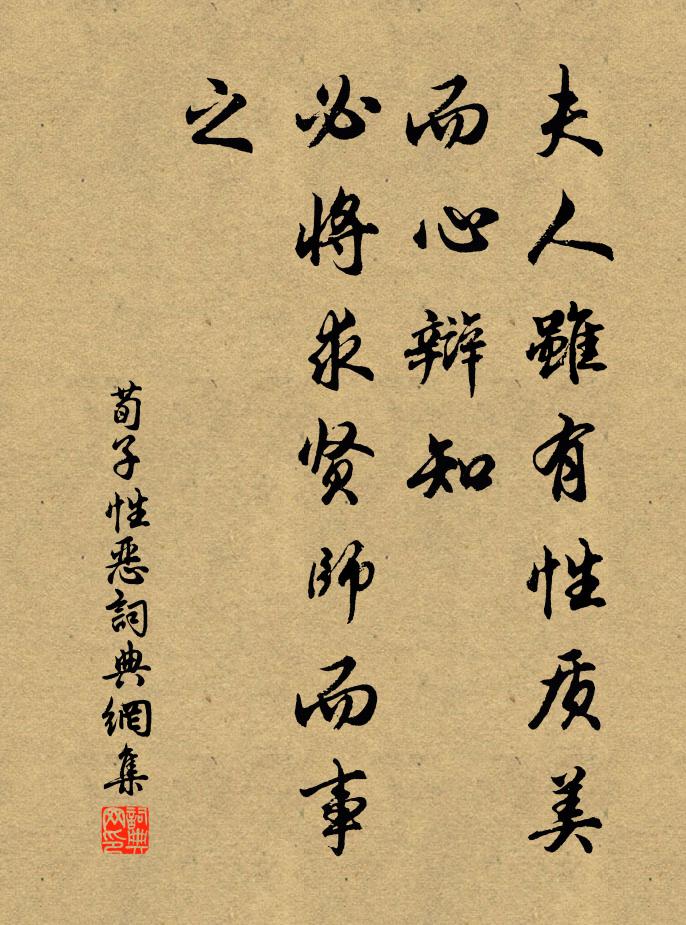 夫人雖有性质美
而心辯知
必將求贤師而事
之
荀子性惡詞典網集
詞典网印